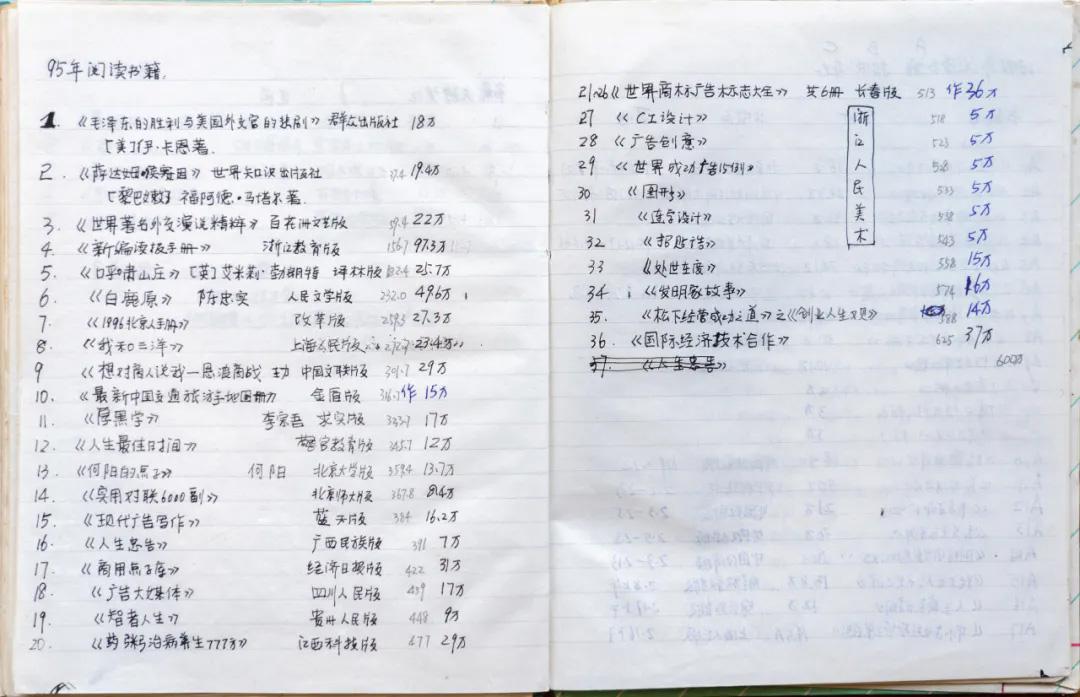 95年阅读书籍.
1. 《毛泽东的胜利与美国外交官的悲剧》 群众出版社 18万
[美]伊·卡恩著.
2. 《萨达姆·侯赛因》 世界知识出版社 37.4 19.4万
[黎巴嫩] 福阿德·马塔尔著.
3. 《世界著名外交演说精粹》 百花洲文艺版 59.4 22万
4. 《新编读报手册》 浙江教育版 156.7 97.3万
5. 《呼啸山庄》 [英] 艾米莉·勃朗特 译林版 182.4 25.7万
6. 《白鹿原》 陈忠实 人民文学版 232.0 49.6万
7. 《1996北京人手册》 改革版 259.3 27.3万
8. 《我和三洋》 上海人民版 23.4万
9 《想对商人说我一恩波商战 中国文联版 301.7 29万
10. 《最新中国交通旅游地图册》 金盾版 316.7 作 15万
11. 《厚黑学》 李宗吾 求实版 333.7 17万
12. 《人生最佳时间》 警官教育版 345.7 12万
13. 《何阳的点子》 何阳 北京大学版 359.4 13.7万
14. 《实用对联6000副》 北京师大版 367.8 8.4万
15. 《现代广告写作》 蓝天版 384 16.2万
16. 《人生忠告》 广西民族版 391 7万
17. 《商用点子库》 经济日报版 422 31万
18. 《广告大媒体》 四川人民版 439 17万
19. 《智者人生》 贵州人民版 448 9万
20. 《药粥治病养生777方》 江西科技版 477 29万
21-26 《世界商标广告标志大全》 共6册 长春版 513 作36万
27 《CI设计》 518 5万
28 《广告创意》 523 5万
29 《世界成功广告15例》 528 5万
30 《图形》 533 5万
31 《连字设计》 538 5万
32 《招贴造》 543 5万
浙江人民美术
33 《处世车度》 558 15万
34 《发明家故事》 574 16万
35. 《松下经营成功之道》之《创业人生观》 588 14万
36. 《国际经济技术合作》 625 37万
37. 《人生忠告》 600万